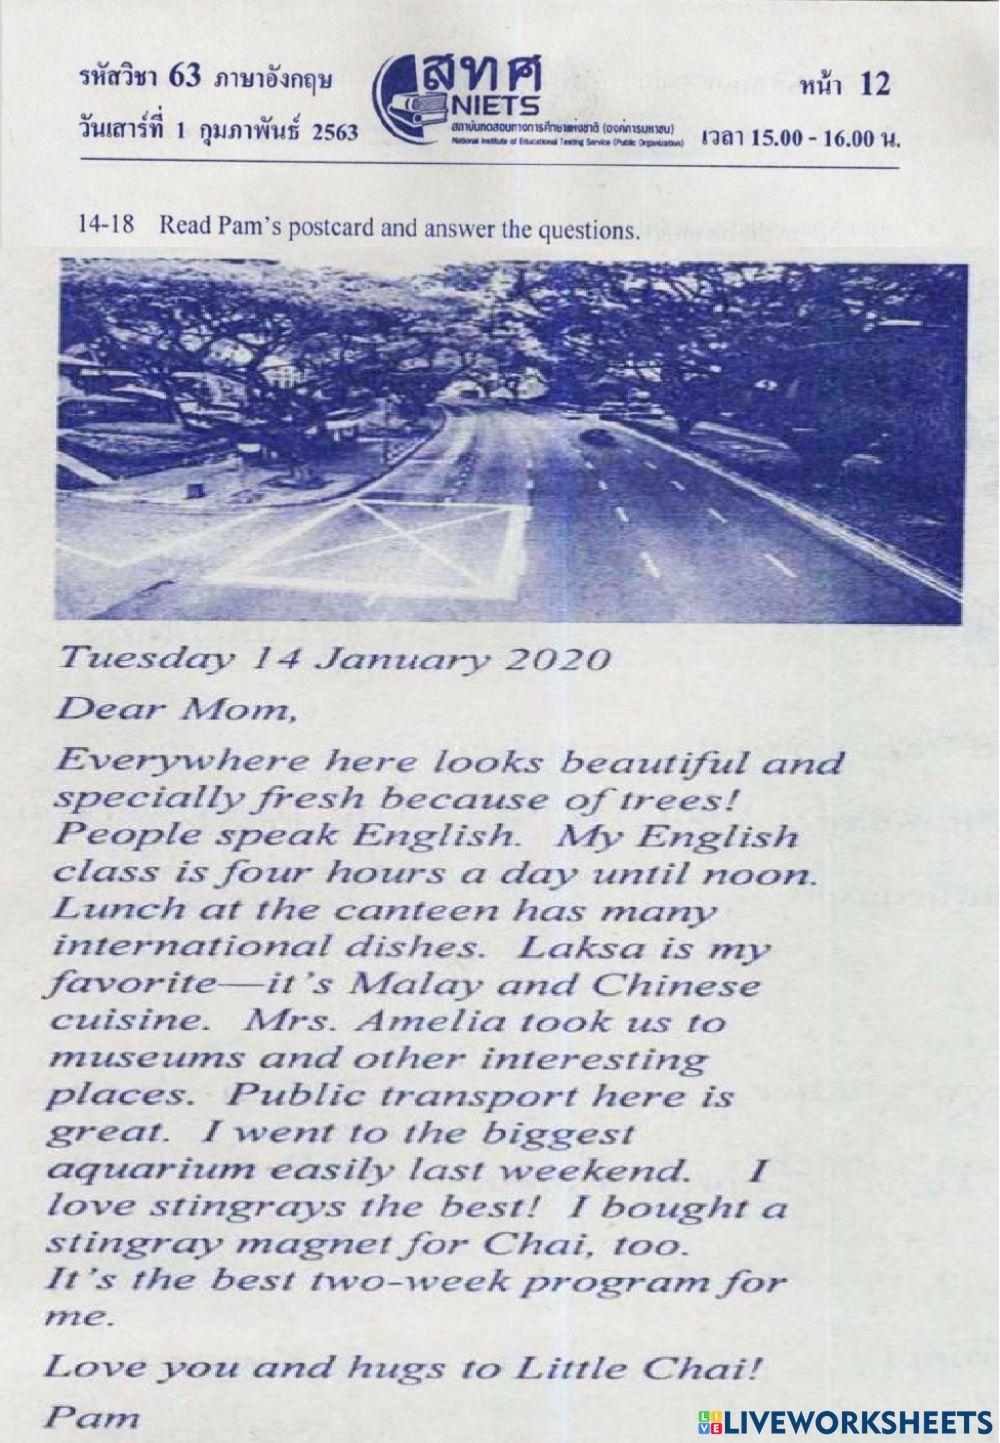 รหัสวิชา 63 ภาษาอังกฤษ
วันเสาร์ที่ 1 กุมภาพันธ์ 2563
สทศ
NIETS
สถาบันทดสอบทางการศึกษาแห่งชาติ (องค์การมหาชน)
National Institute of Educational Testing Service (Public Organization)
หน้า 12
เวลา 15.00 - 16.00 น.
14-18 Read Pam's postcard and answer the questions.
Tuesday 14 January 2020
Dear Mom,
Everywhere here looks beautiful and
specially fresh because of trees!
People speak English. My English
class is four hours a day until noon.
Lunch at the canteen has many
international dishes. Laksa is my
favorite—it's Malay and Chinese
cuisine. Mrs. Amelia took us to
museums and other interesting
places. Public transport here is
great. I went to the biggest
aquarium easily last weekend. I
love stingrays the best! I bought a
stingray magnet for Chai, too.
It's the best two-week program for
me.
Love you and hugs to Little Chai!
Pam
LIVE LIVEWORKSHEETS